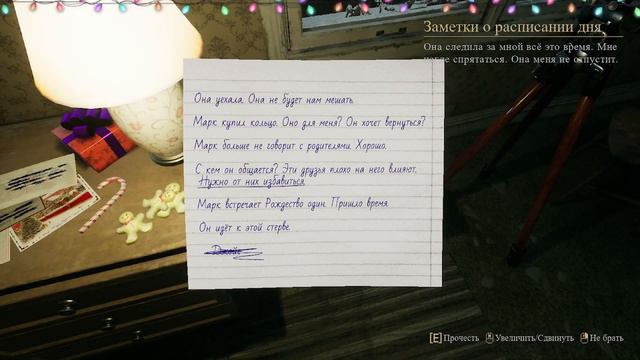 Заметки о расписании дня
Она следила за мной всё это время. Мне
негде спрятаться. Она меня не отпустит.
Она уехала. Она не будет нам мешать.
Марк купил кольцо. Оно для меня? Он хочет вернуться?
Марк больше не говорит с родителями. Хорошо.
С кем он общается? Эти друзья плохо на него влияют.
Нужно от них избавиться.
Марк встречает Рождество один. Пришло время.
Он идёт к этой стерве.
[E] Прочесть Увеличить/Сдвинуть Не брать